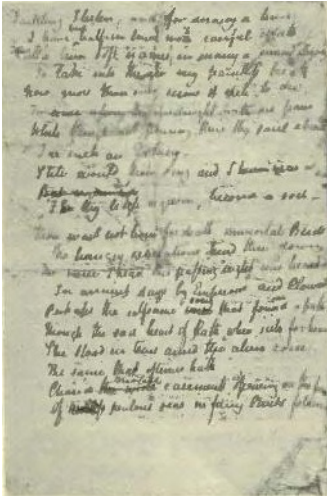 Darkling I listen, and for many a time
I have been half in love with easeful death
Call'd him soft names in many a mused rhyme
To take into the air my painless breath
Now, more than ever seems it rich to die
To cease upon the midnight with no pain
While thou art pouring thus thy soul abroad
In such an Extacy—
Still would thou sing and I have ears in vain
But
For thy high requiem, become a sod—
Thou wast not born for death immortal Bird
No hungry generations tread thee down
The voice I hear this passing night was heard
In ancient days by Emperour and Clown
Perhaps the selfsame song that found a path
Through the sad heart of Ruth when sick for home
She stood in tears amid the alien corn
The same that oftimes hath
Charm'd magic casements opening on the foam
Of perilous seas in fairy lands forlorn